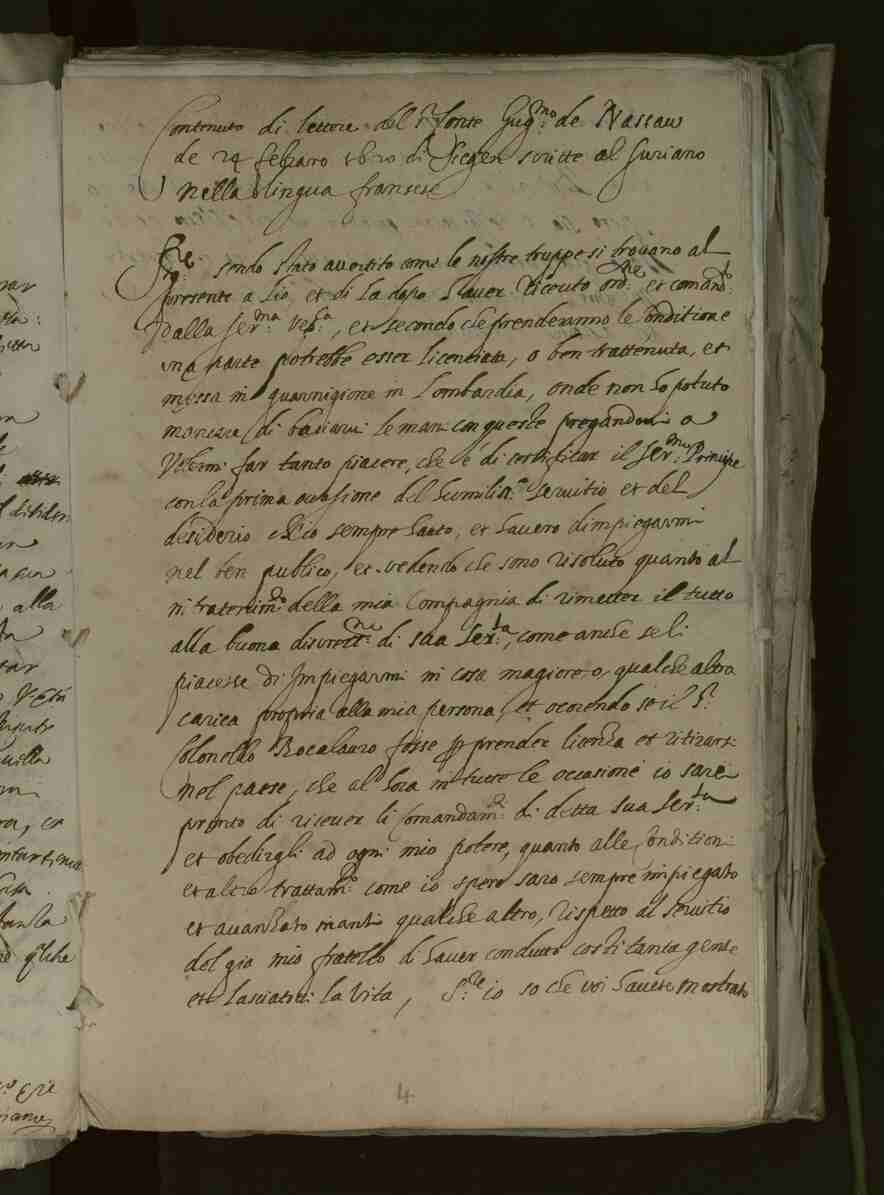 Contenuto di lettera del s.r Conte Gug.mo de Nassau
de 24 Febraro 1620 di Siegen scritte al Suriano
nella lingua francese
Sig.re sendo stato avertito come le nostre truppe si trovano al
presente a Lio, et di la dopo d'haver ricevuto ord.ne et comand.to
dalla Ser.ma Rep.ca, et secondo che prenderanno le conditioni
una parte potrebbe esser licentiata, o ben trattenuta, et
messa in guarnigione in Lombardia, onde non ho potuto
mancare di baciarvi le mani con queste pregandovi a
volermi far tanto piacere, che è di certificar il Ser.mo Principe
con la prima occasione del humiliss.o servitio et del
desiderio ch'io sempre hauto, et havero d'impiegarmi
nel ben publico, et vedendo che sono risoluto quanto al
intratenim.to della mia Compagnia di rimetter il tutto
alla buona discrett.ne di sua Ser.ta, come anche se li
piacesse di impiegarmi in cosa magiore, o, qualche altra
carica propria alla mia persona, et ocorendo se il S.r
Colonello Rocalauro fosse per prender licenza et ritirarsi
nel paese, che al hora in tutte le occasione io sarei
pronto di ricever li comandam.ti di detta sua Ser.ta
et obedirgli ad ogni mio potere, quanto alle conditioni
et altro trattam.to come io spero saro sempre impiegato
et avanzato inanti qualche altro, rispetto al servitio
del gia mio fratello di haver condutto costi tanta gente
et lasciatovi la vita, S.re io so che voi havete mostrato
4